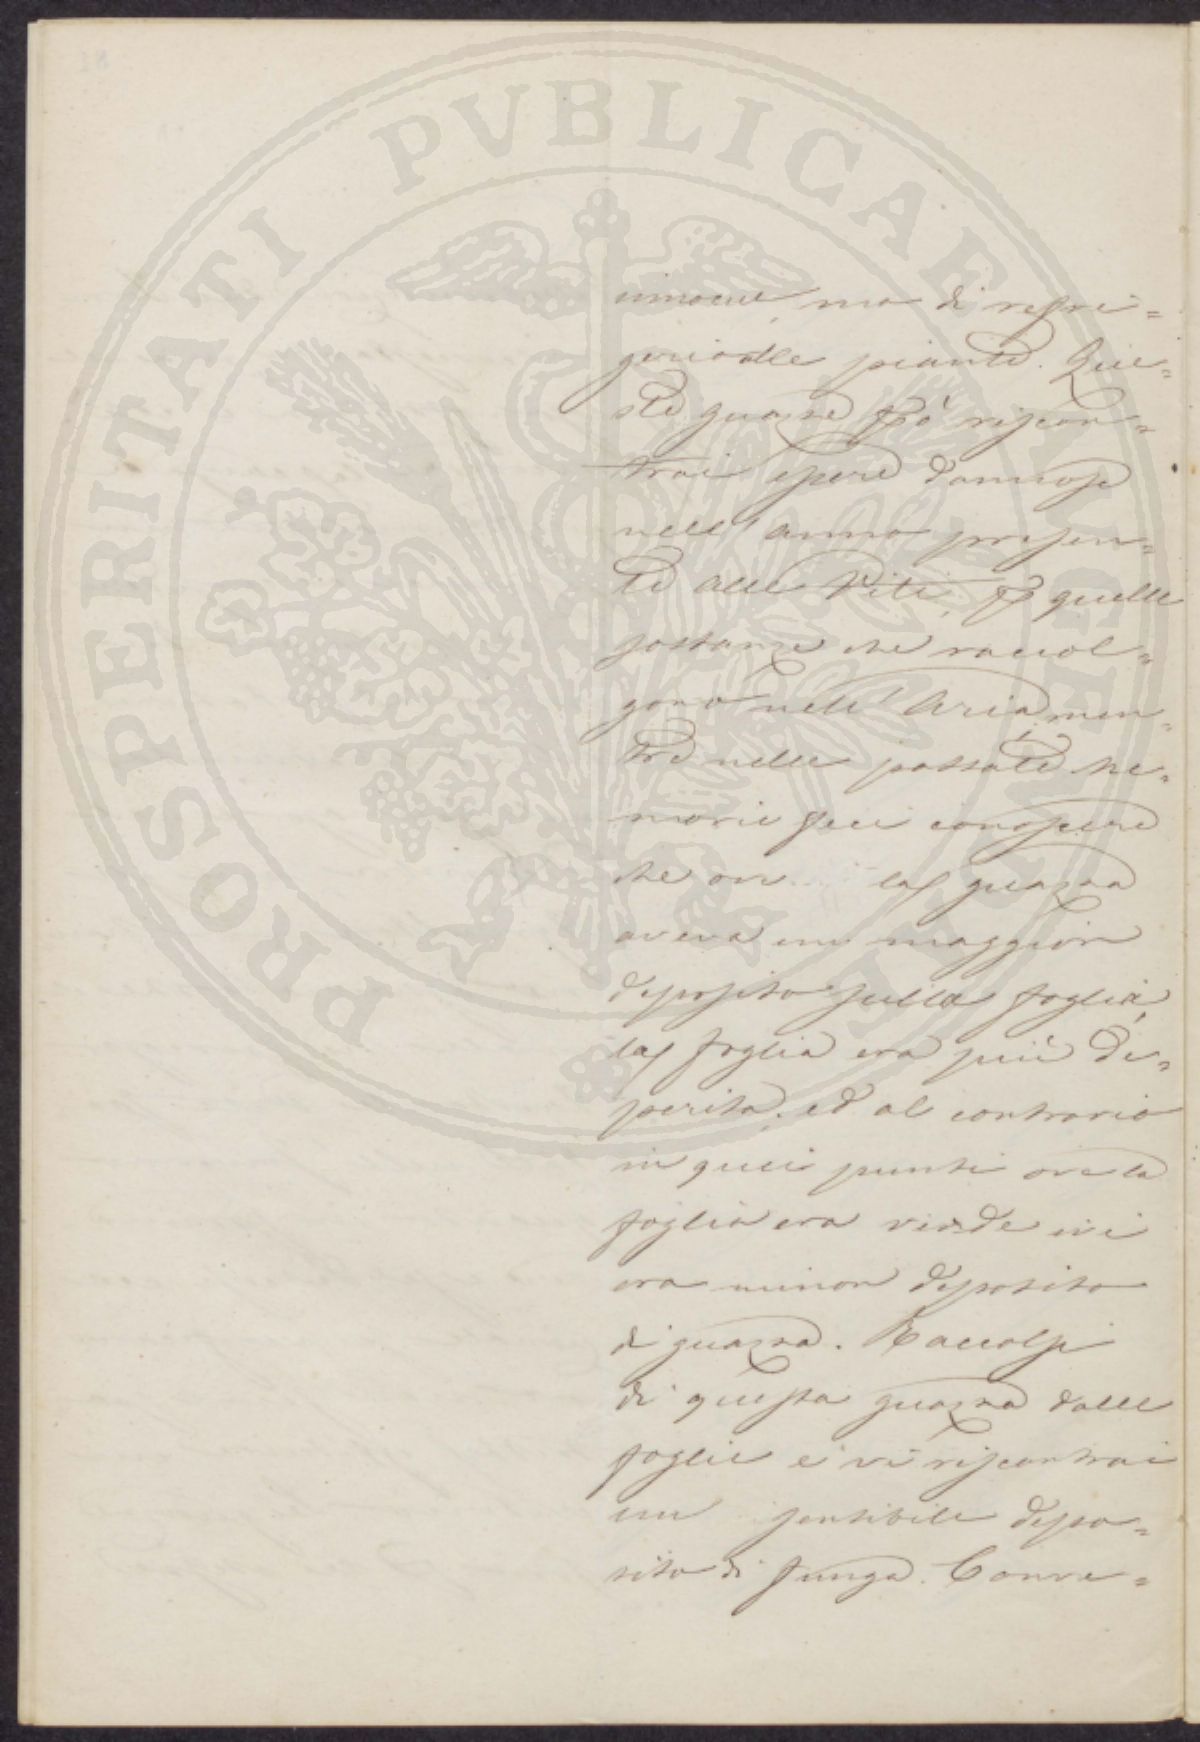 PROSPERITATI PVBLICAE AVGENDAE
umore, ma di refri=
gerio alle piante. Que=
ste guazze però riscon=
trai essere dannose
nell'anno presen=
te alle Viti, p quelle
sostanze che raccol=
gono nell'Aria, men=
tre nelle passate Me=
morie feci conoscere
che ove la guazza
aveva un maggior
deposito sulla foglia,
la foglia era più de=
perita, ed al contrario
in quei punti ove la
foglia era verde ivi
era minor deposito
di guazza. Raccolsi
di questa guazza dalle
foglie e vi riscontrai
un sensibile depo=
sito di funga. Conve=